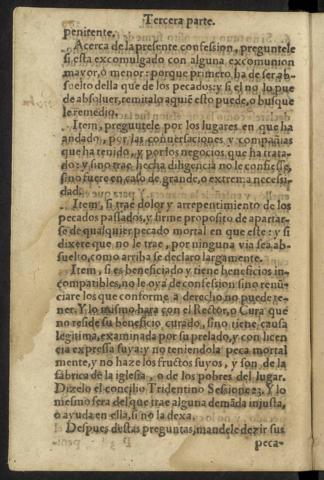 Tercera parte.
penitente.
Acerca de la presente confession, preguntele
si esta excomulgado con alguna excomunion
mayor, ò menor: porque primero ha de ser ab-
suelto della que de los pecados: y si el no lo pue
de absoluer, remitalo a quiē esto puede, o busque
le remedio.
Item, preguntele por los lugares en que ha
andado, por las conuersaciones y compañias
que ha tenido, y por los negocios que ha trata-
do: y sino trae hecha diligencia no le confiesse,
sino fuere en caso de grande, o extrema necessi-
dad.
Item, si trae dolor y arrepentimiento de los
pecados passados, y firme proposito de apartar-
se de qualquier pecado mortal en que este: y si
dixere que no le trae, por ninguna via sea ab-
suelto, como arriba se declaro largamente.
Item, si es beneficiado y tiene beneficios in-
compatibles, no le oya de confession sino renū-
ciare los que conforme a derecho no puede te-
ner. Y lo mismo hara con el Rector, o Cura que
no reside su beneficio curado, sino tiene causa
legitima, examinada por su prelado, y con licen
cia expressa suya: y no teniendola peca mortal
mente, y no haze los fructos suyos, y son de la
fabrica de la iglesia, o de los pobres del lugar.
Dizelo el concilio Tridentino Sessione 23. Y lo
mesmo sera del que trae alguna demāda injusta,
o ayuda en ella, si no la dexa.
Despues destas preguntas, mandele dezir sus
peca-